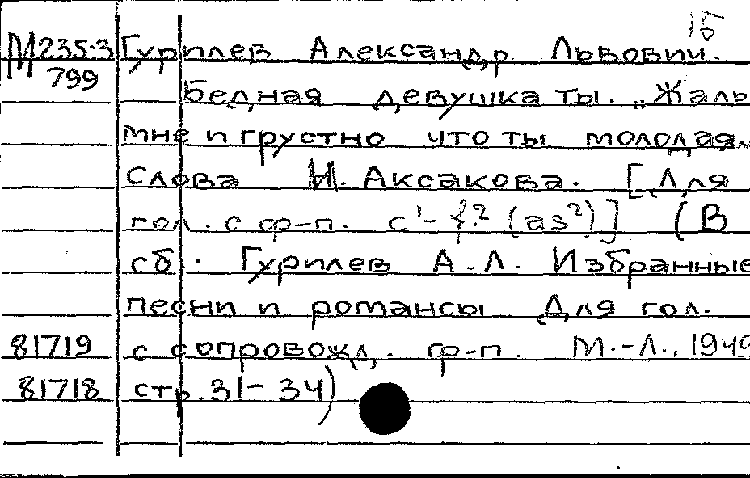 15
М235.3 Гурилев Александр Львович.
799 Бедная девушка ты. „Жаль
мне и грустно что ты молодая..
Слова И. Аксакова. [Для
гол. с ф-п. c¹- (as²)] (В
сб. Гурилев А.Л. Избранные
песни и романсы Для гол.
81719 с сопровожд. ф-п. М.-Л., 1949
81718 стр. 31-34)